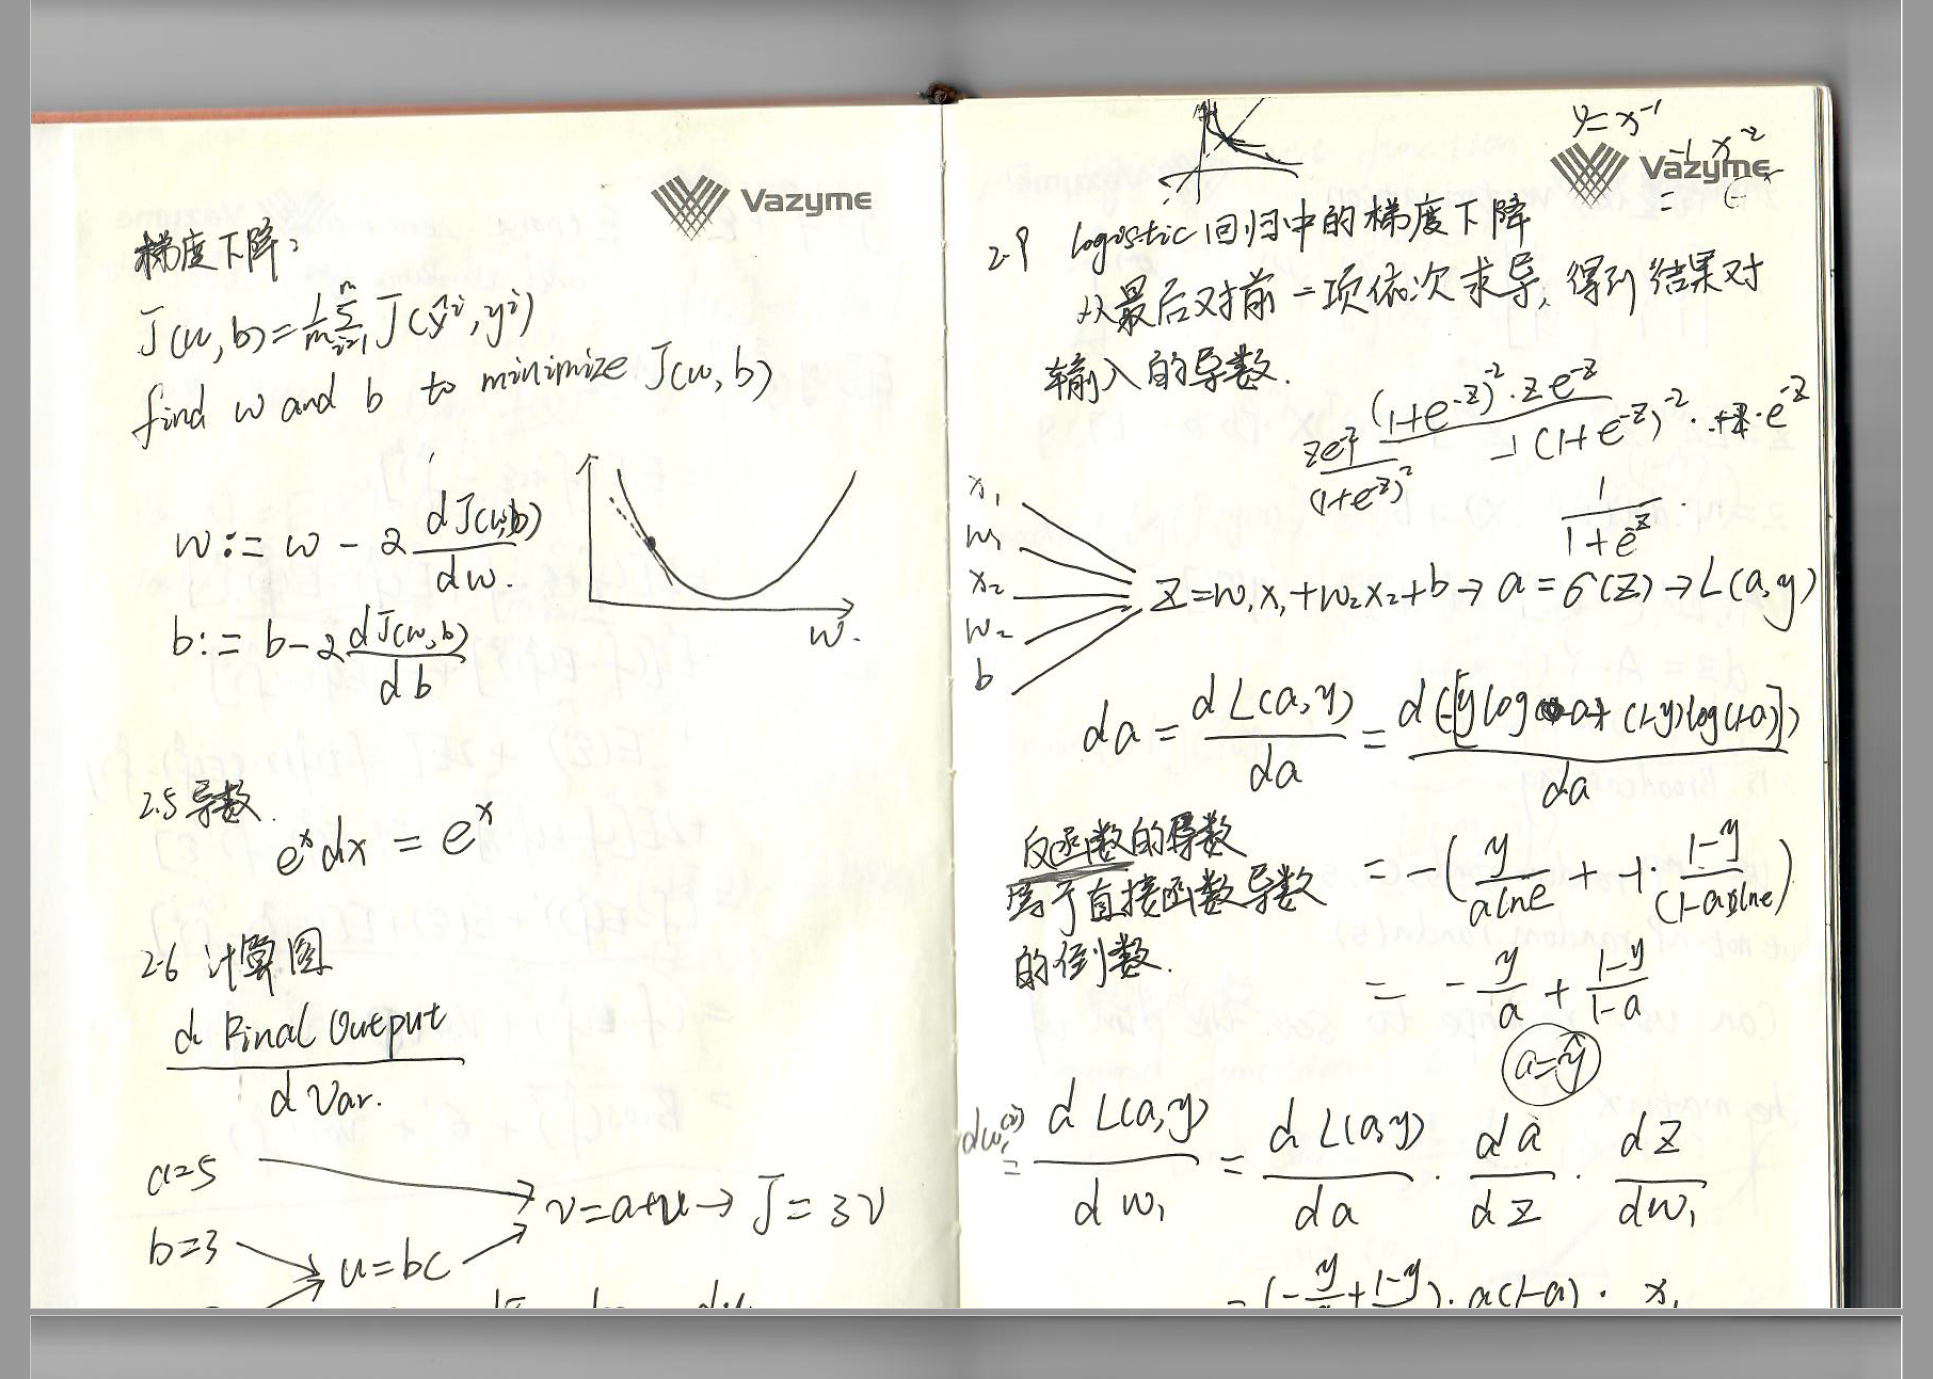 Vazyme
梯度下降：
J(w,b)=1/m Σ_{i=1}^{m} J(ŷ^i, y^i)
find w and b to minimize J(w,b)
w := w - 2 dJ(w,b)/dw.
w.
b := b - 2 dJ(w,b)/db
2.5 导数.
e^x dx = e^x
2.6 计算图
d Final Output / d Var.
a=5
v=a+u → J=3v
b=3
u=bc
y=x^-1
-1 x^-2
Vazyme
=
2.9 logistic 回归中的梯度下降
从最后对前一项依次求导, 得到结果对
输入的导数.
(1+e^-z)^-2 · z e^-z
-1(1+e^-z)^-2 · e^-z
ze^-z/(1+e^-z)^2
1/(1+e^-z)
x1
w1
x2
w2
b
z=w1x1+w2x2+b → a=σ(z) → L(a,y)
da = dL(a,y)/da = d(-[y log a + (1-y)log(1-a)])/da
反函数的导数
等于直接函数导数
的倒数.
= -(y/(a ln e) + -1· (1-y)/((1-a)ln e))
= -y/a + (1-y)/(1-a)
a=ŷ
dw1^(i) = dL(a,y)/dw1 = dL(a,y)/da · da/dz · dz/dw1
= (-y/a + (1-y)) · a(1-a) · x1